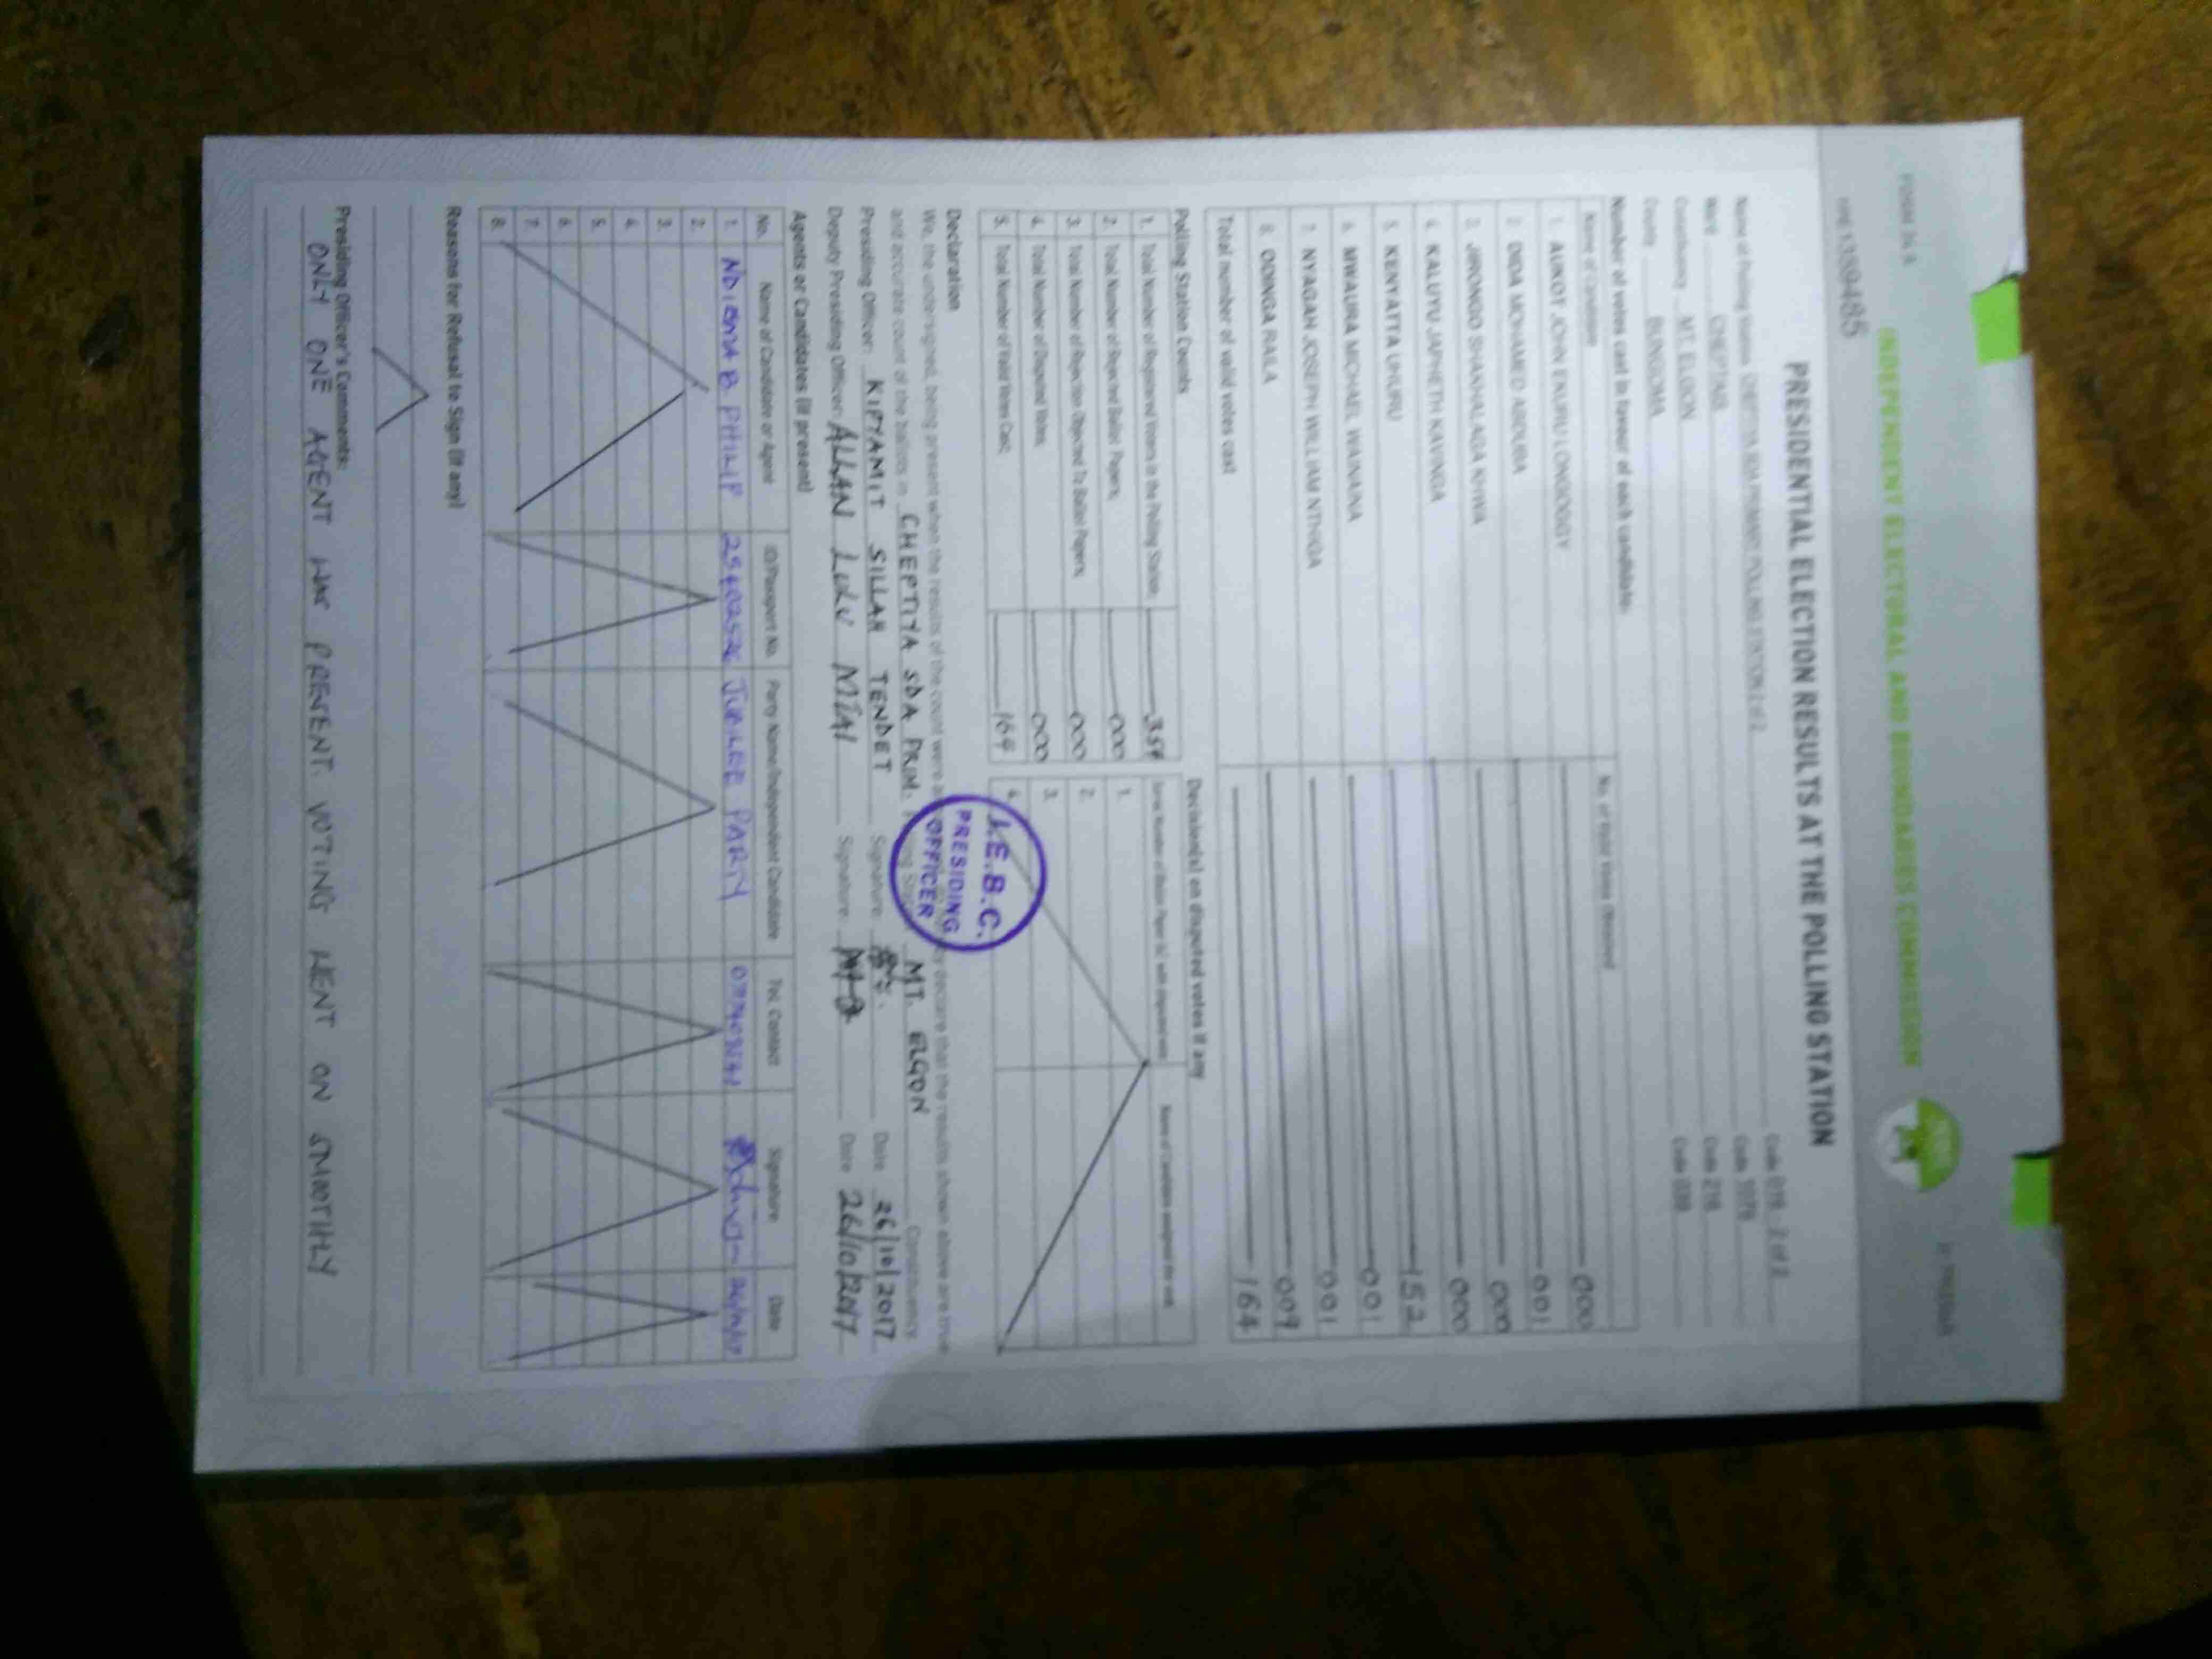 FORM 34 A
INDEPENDENT ELECTORAL AND BOUNDARIES COMMISSION
PRESIDENTIAL ELECTION RESULTS AT THE POLLING STATION
Name of Polling Station CHEPTIYA SDA PRIMARY POLLING STATION 2 of 2 Code 019 - 2 of 2
Ward Code
Constituency MT. ELGON Code 216
County BUNGOMA Code 039
Number of votes cast in favour of each candidate:
Name of Candidate No. of Valid Votes Obtained
1. AUKOT JOHN EKURU LONGOGGY 000
2. DIDA MOHAMED ABDUBA 001
3. JIRONGO SHAKHALAGA KHWA 000
4. KALUYU JAPHETH KAVINGA 000
5. KENYATTA UHURU 152
6. MWAURA MICHAEL WAINAINA 001
7. NYAGAH JOSEPH WILLIAM NTHIGA 001
8. ODINGA RAILA 009
Total number of valid votes cast 164
Polling Station Counts
1. Total Number of Registered Voters in the Polling Station;
2. Total Number of Rejected Ballot Papers; 000
3. Total Number of Rejection Objected To Ballot Papers; 000
4. Total Number of Disputed Votes; 000
5. Total Number of Valid Votes Cast; 164
Decision(s) on disputed votes if any
1.
2.
3.
4.
Declaration
We, the undersigned, being present when the results of the count were declare that the results shown above are true
and accurate count of the ballots in CHEPTIYA SDA PRIM. MT. ELGON Constituency
Presiding Officer: KIPTAMIT SILLAH TENDET Signature Date 26/10/2017
Deputy Presiding Officer: ALLAN Signature Date 26/10/2017
I.E.B.C.
PRESIDING
OFFICER
Agents or Candidates (if present)
No. Name of Candidate or Agent ID/Passport No. Party Name/Independent Candidate Tel. Contact Signature Date
1. NDIEMA B. PHILIP JUBILEE PARTY 26/10/17
2.
3.
4.
5.
6.
7.
8.
Reasons for Refusal to Sign (if any)
Presiding Officer's Comments:
ONLY ONE AGENT WAS PRESENT. VOTING WENT ON SMOOTHLY